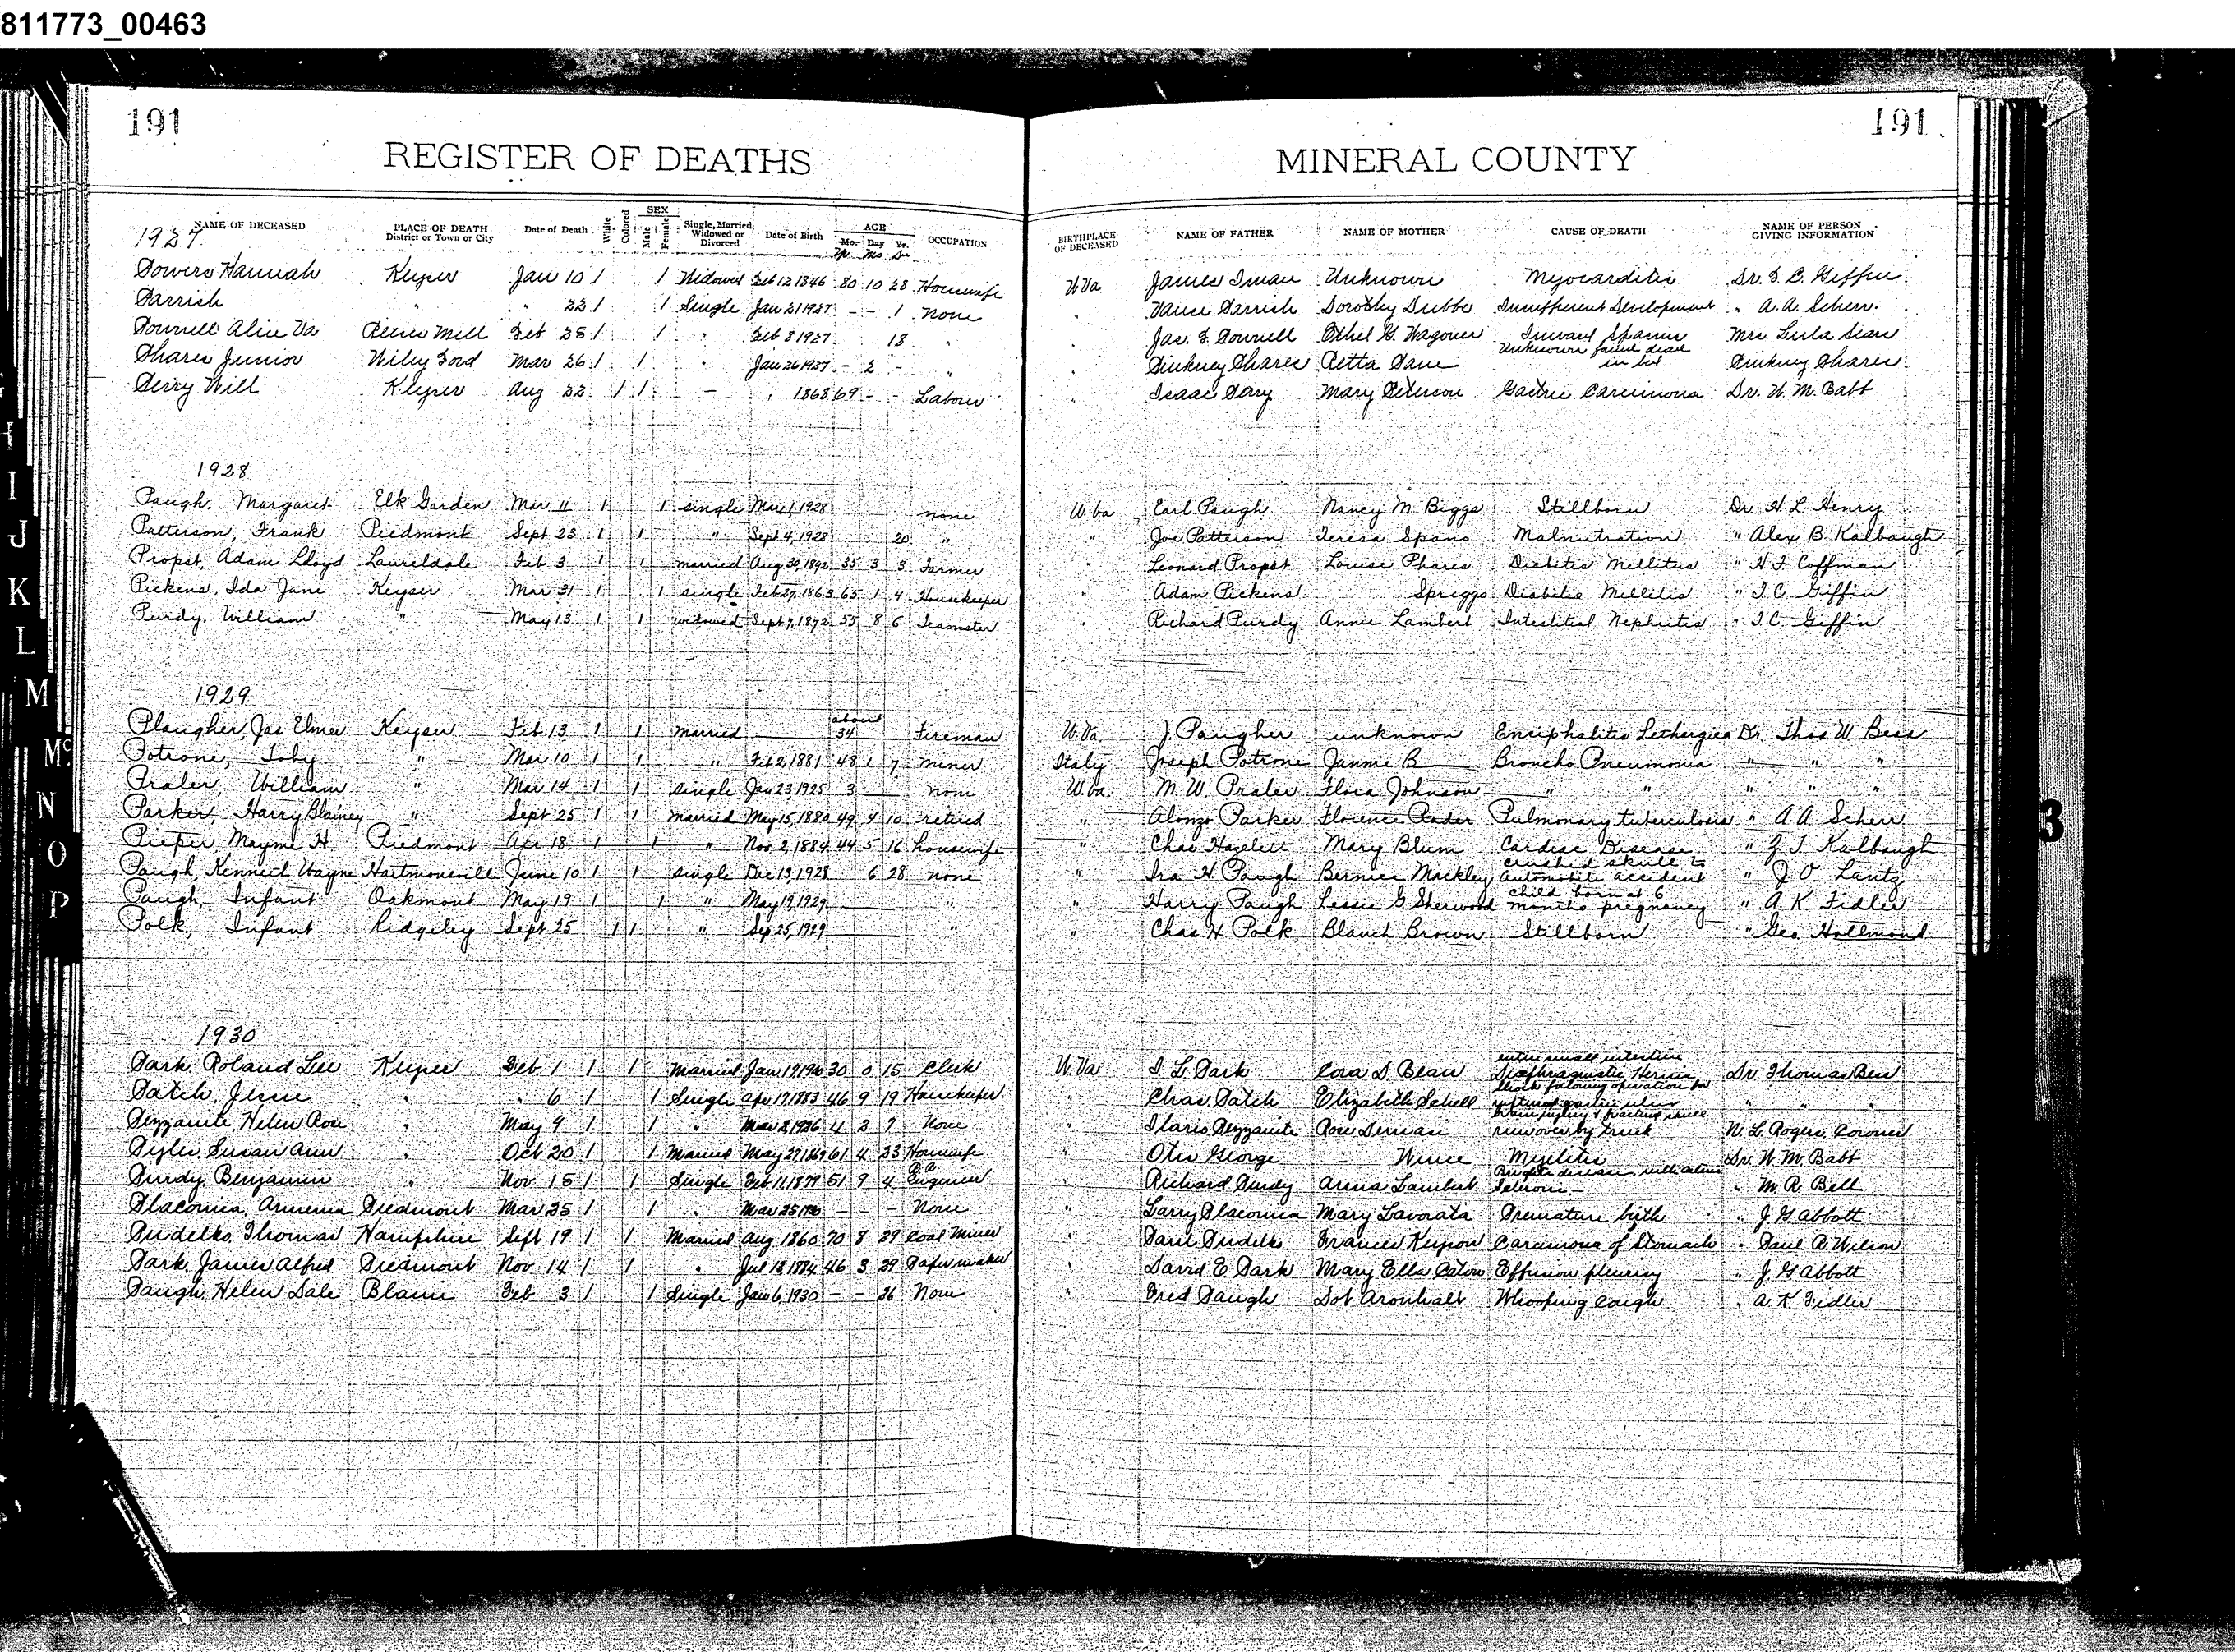 811773_00463
191
191
REGISTER OF DEATHS
MINERAL COUNTY
NAME OF DECEASED PLACE OF DEATH District or Town or City Date of Death White Colored SEX Male Female Single, Married Widowed or Divorced Date of Birth AGE Mo. Day Yr. OCCUPATION BIRTHPLACE OF DECEASED NAME OF FATHER NAME OF MOTHER CAUSE OF DEATH NAME OF PERSON GIVING INFORMATION
Yr. Mo Da
1927
Powers Hannah Keyser Jan 10 1 1 Widowed Feb 12 1846 80 10 28 Housewife W Va James Iman Unknown Myocarditis Dr. F. C. Giffin
Parrish " 22 1 1 Single Jan 21 1927 - - 1 None " Vance Parrish Dorothy Insufficient Development " A. A. Scherr.
Pownell Alice Va Reese Mill Feb 25 1 1 " Feb 8 1927 18 " " Jas. F. Pownell Ethel G. Wagoner Inward Spasms Mrs. Lula
Phares Junior Wiley Ford Mar 26 1 1 " Jan 26 1927 - 2 - " " Pinkney Phares Retta Unknown found dead in bed Pinkney Phares
Perry Will Keyser Aug 22 1 1 - 1868 69 - - Laborer " Isaac Perry Mary Peterson Gastric Carcinoma Dr. W. M. Babb
1928
Paugh, Margaret Elk Garden Mar 11 1 1 single Mar 11, 1928 none W Va Earl Paugh Nancy M. Biggs Stillborn Dr. H. L. Henry
Patterson, Frank Piedmont Sept 23 1 1 " Sept 4, 1928 20 " " Joe Patterson Teresa Spano Malnutrition " Alex B. Kalbaugh
Propst, Adam Lloyd Laureldale Feb 3 1 1 married Aug 30, 1892 35 3 3 Farmer " Leonard Propst Louise Phares Diabitis Mellitus " H. F. Coffman
Pickens, Ida Jane Keyser Mar 31 1 1 single Feb 27, 1863 65 1 4 Housekeeper " Adam Pickens Spriggs Diabitis Mellitis " F C Giffin
Purdy, William " May 13 1 1 widowed Sept 7, 1872 55 8 6 Teamster " Richard Purdy Annie Lambert Intestitial Nephritis " F C Giffin
1929
Plaugher, Jas Elmer Keyser Feb 13 1 1 married about 34 Fireman W. Va. J Paugher unknown Enciphalitis Lethargica Dr. Thos W. Bess
Potrone, Toby " Mar 10 1 1 " Feb 2, 1881 48 1 7 miner Italy Joseph Potrone Jannie B Broncho Pneumonia " " "
Prater, William " Mar 14 1 1 single Jan 23, 1925 3 none W. Va. M. W. Prater Flora Johnson " " " " "
Parker, Harry Blainey " Sept 25 1 1 married May 15, 1880 49 4 10 retired " Alonzo Parker Florence Rader Pulmonary tuberculosis " A A Scherr
Pieper, Mayme H Piedmont Apr 18 1 1 " Nov. 2, 1884 44 5 16 housewife " Chas Hazelett Mary Blum Cardiac Disease " Z T Kalbaugh
Paugh, Kennerd Wayne Hartmonsville June 10 1 1 single Dec 13, 1928 6 28 none " Ira H Paugh Bernice Mackley crushed skull automobile accident " J O Lantz
Paugh, Infant Oakmont May 19 1 1 " May 19, 1929 " " Harry Paugh Lessie G Sherwood child born at 6 months pregnancy " A K Fidler
Polk, Infant Ridgeley Sept 25 1 1 " Sep 25, 1929 " " Chas H. Polk Blanch Brown Stillborn " Geo Hollmond
1930
Park, Roland Lee Keyser Feb 1 1 1 Married Jan. 17 30 0 15 Clerk W. Va Park Cora S. Bean entire small intestine Diaphragmatic Hernia Dr. Thomas Bess
Patch, Jessie " " 6 1 1 Single Apr 17, 1883 46 9 19 Housekeeper " Chas. Patch Elizabeth Schell Shock following operation for ruptured gastric ulcer " " "
Pezzanite, Helen Rose " May 9 1 1 " Mar 2, 1926 4 2 7 None " Ilario Pezzanite Rose brain injury & fracture skull run over by truck N. L. Rogers, Coroner
Pyles, Susan Ann " Oct 20 1 1 Married May 27, 1869 61 4 23 Housewife " Otis George - Myelitis Dr. W. M. Babb
Purdy, Benjamin " Nov. 15 1 1 Single Feb. 11, 1879 51 9 4 Engineer " Richard Purdy Anna Lambert Brights disease with " M. R. Bell
Placonia, Armenia Piedmont Mar 25 1 1 " Mar 25 - - None " Larry Placonia Mary Lavorata Premature birth " J. G. Abbott
Pudelko, Thomas Hampshire Sept 19 1 1 Married Aug 1860 70 8 29 Coal Miner Paul Pudelko Frances Carcinoma of Stomach " Paul R. Wilson
Park, James Alfred Piedmont Nov. 14 1 1 " Jul 18 1884 46 3 29 Papermaker David E. Park Mary Ella Caton Effusion pleurisy " J. G. Abbott
Paugh, Helen Dale Blaine Feb 3 1 1 Single Jan 6, 1930 - - 26 None Fred Paugh Dot Aronhalt Whooping Cough " A. K Fidler
H
I
J
K
L
M
Mc
N
O
P
3